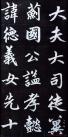 大夫大司徒
薊國公謚孝懿
諱德義女先十